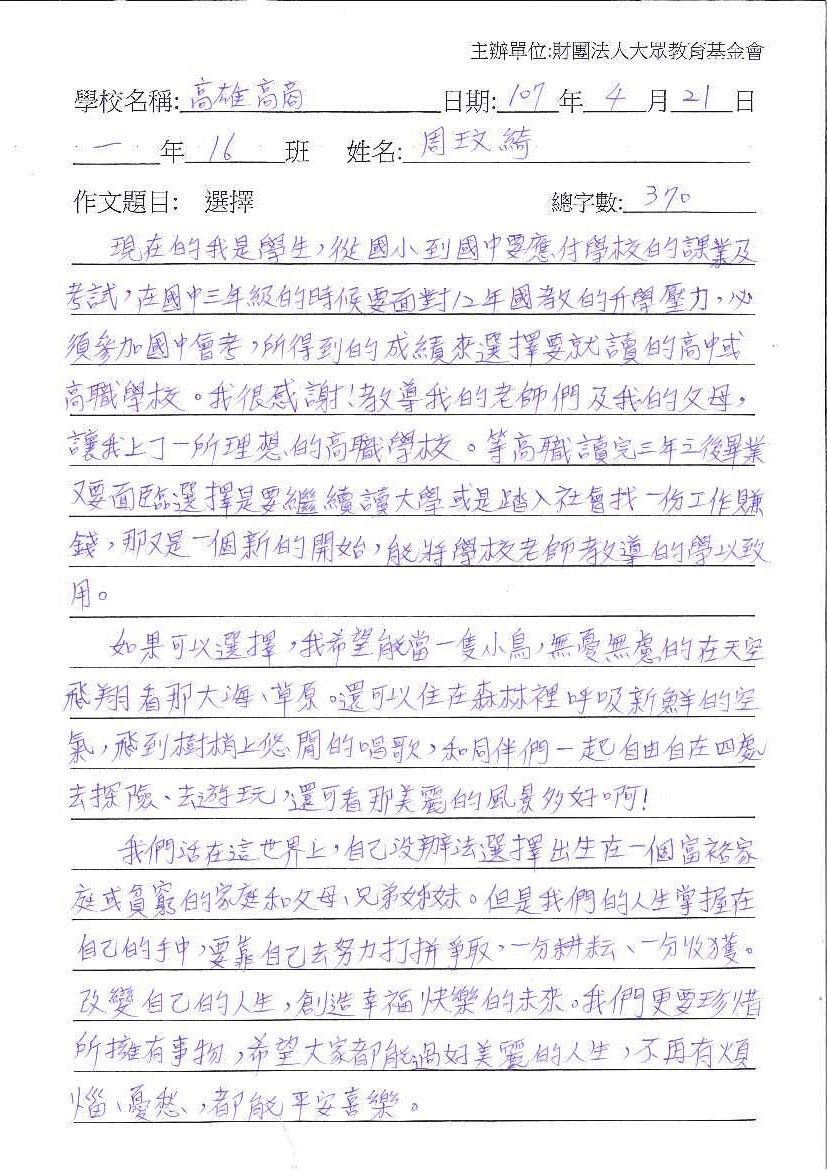 主辦單位:財團法人大眾教育基金會
學校名稱: 高雄高商 日期: 107 年 4 月 21 日
一 年 16 班 姓名: 周玟綺
作文題目: 選擇 總字數: 370
現在的我是學生，從國小到國中要應付學校的課業及
考試，在國中三年級的時候要面對12年國教的升學壓力，必
須參加國中會考，所得到的成績來選擇要就讀的高中或
高職學校。我很感謝！教導我的老師們及我的父母，
讓我上了一所理想的高職學校。等高職讀完三年之後畢業
又要面臨選擇是要繼續讀大學或是踏入社會找一份工作賺
錢，那又是一個新的開始，能將學校老師教導的學以致
用。
如果可以選擇，我希望能當一隻小鳥，無憂無慮的在天空
飛翔看那大海、草原。還可以住在森林裡呼吸新鮮的空
氣，飛到樹梢上悠閒的唱歌，和同伴們一起自由自在四處
去探險、去遊玩，還可看那美麗的風景多好啊！
我們活在這世界上，自己沒辦法選擇出生在一個富裕家
庭或貧窮的家庭和父母、兄弟姊妹。但是我們的人生掌握在
自己的手中，要靠自己去努力打拼爭取，一分耕耘、一分收獲。
改變自己的人生，創造幸福快樂的未來。我們更要珍惜
所擁有事物，希望大家都能過好美麗的人生，不再有煩
惱、憂愁、，都能平安喜樂。